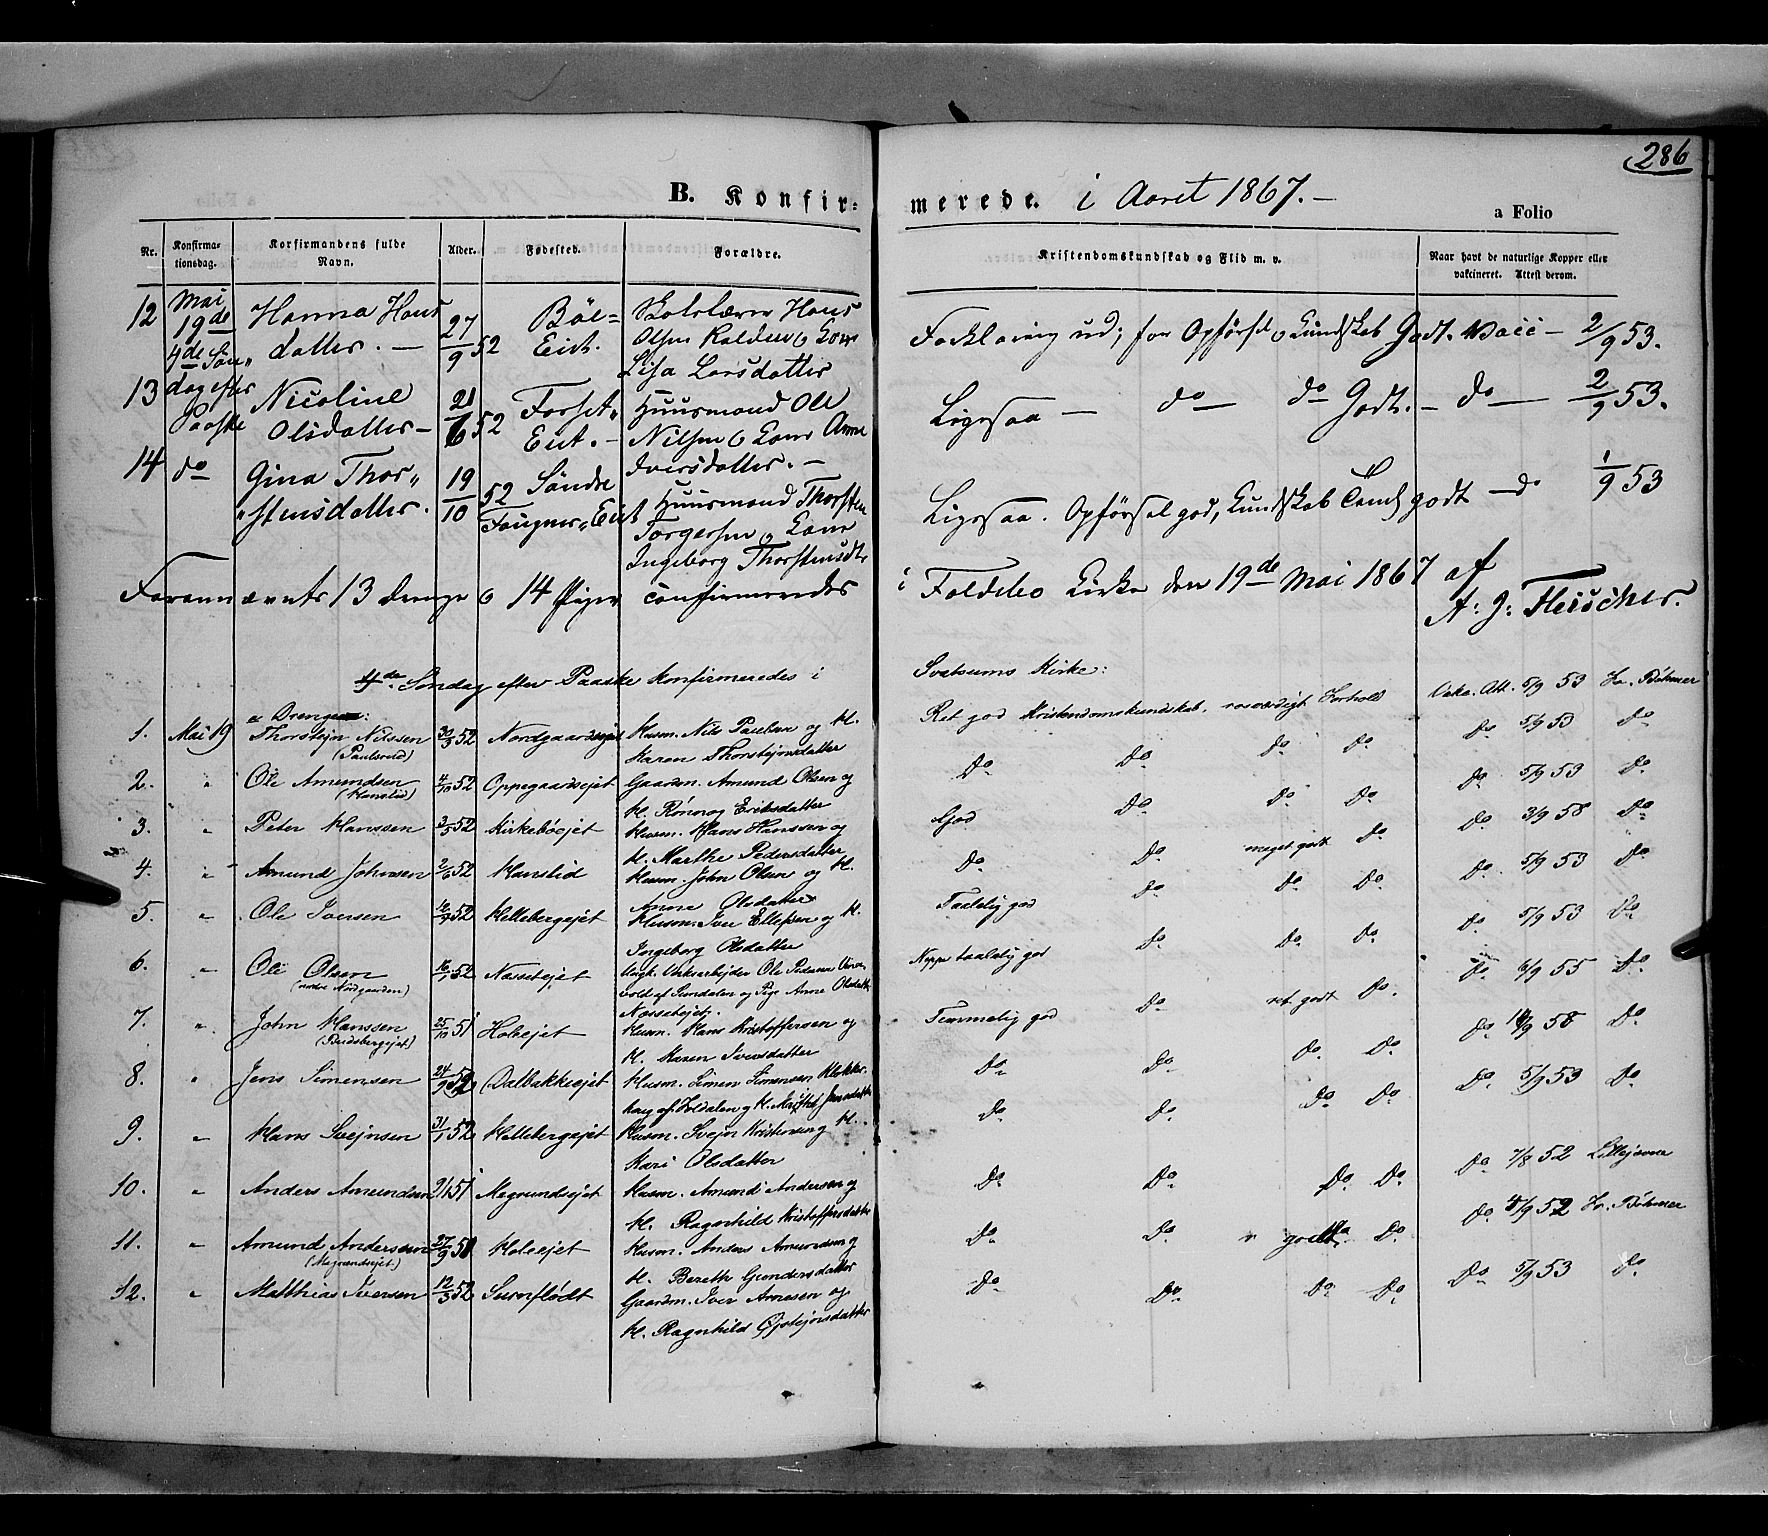 286
B. Konfir-
merede. i Aaret 1867. –
a Folio
Nr.
Konfirma-
tionsdag.
Korfirmandens fulde
Navn.
Alder.
Fødested.
Forældre.
Kristendomskundskab og Flid m. v.
Naar havt de naturlige Kopper eller
vakcineret. Attest derom.
12 Mai Hanna Hans 27 Böe= Skolelærer Hans
19de datter. — 9 52 Eiet. Olsen Kolden o Kone
4de Søn„ Lisa Larsdatter
Forklaring ud; for Opförsel o Kundskab Godt. Vacc – 2/9 53.
13 dag efter Nicoline 21 Forset„ Huusmand Ole
Paaske Olsdatter – 6 52 Eiet. – Nilsen o Kone Anne
Iversdatter. –
Ligesaa — do — do Godt. – do — 2/9 53.
14 do Gina Thor„ 19 Söndre Huusmand Thorsten
„stensdatter. 10 52 Fougner„ Eiet Torgersen o Kone
Ingeborg Thorstensdtr
Ligesaa. Opförsel god, Kundskab Temk godt — do 1/9 53
Forannævnte 13 Drenge o 14 Piger confirmeredes
i Foldebo Kirke den 19de Mai 1867 af
A: G: Fleischer.
4de Søndag efter Paaske konfirmeredes i
Svatsums Kirke:
a Drenge:
1. Mai 19 Thorstejn Nilssen 30/3 52 Nordgaardsejet Husm. Nils Paulsen og K.
(Paulsveld) Karen Thorstejnsdatter
Ret god Kristendomskundskab, rosværdigt Forhold Vakc. Att. 5/9 53 Hr. Böhmer
2. „ Ole Amundsen 4/10 52 Oppegaardsejet Gaardm. Amund Olsen og
(Hanslid) K. Rönnog Eriksdatter
Do Do Do Do Do 5/9 53 Do
3. „ Peter Hanssen 3/5 52 Kirkebøejet Husm. Hans Hanssen og
K. Marthe Pedersdatter
God Do Do Do Do 5/9 53 Do
4. „ Amund Johnsen 2/6 52 Hanslid Husm. John Olsen og K.
Anne Olsdatter
Do Do meget godt Do Do 3/9 58 Do
5. „ Ole Iversen 16/9 52 Kellebergejet Husm. Iver Ellefsen og K.
Ingeborg Olsdatter
Taalelig god Do Do Do Do 5/9 53 Do
6. „ Ole Olsen 16/1 52 Næssetejet Ungk. Ole Pedersen
(nedre Nordgaarden) og Pige Anne Olsdatter
Næssetejet.
Neppe taalelig god Do Do Do Do 5/9 53 Do
7. „ John Hanssen 25/10 51 Holsejet Husm. Hans Kristoffersen og
K. Karen Iversdatter
Temmelig god Do ret godt Do Do 6/9 55 Do
8. „ Jens Simensen 24/9 52 Dalbakkeejet Husm. Simen Simensen
Do Do Do Do Do 58 Do
9. „ Hans Svejnsen 31/1 52 Kellebergejet Husm. Svejn Kristensen og K.
Kari Olsdatter
Do Do Do Do Do 5/9 53 Do
10. „ Anders Amundsen 51 Megrundsejet Husm. Amund Andersen og
K. Ragnhild Kristoffersdatter
Do Do Do Do Do 7/8 52
11. „ Amund Andersen 27/9 Holsejet Husm. Anders Amundsen og
(Megrundsejet) K. Bereth Gundersdatter
Do Do godt Do Do 52 Hr. Böhmer
12. „ Matthias Iversen 12/3 52 Surnflödt Gaardm. Iver Arnesen og
K. Ragnhild Öjstejnsdatter
Do Do Do Do Do 5/9 53 Do